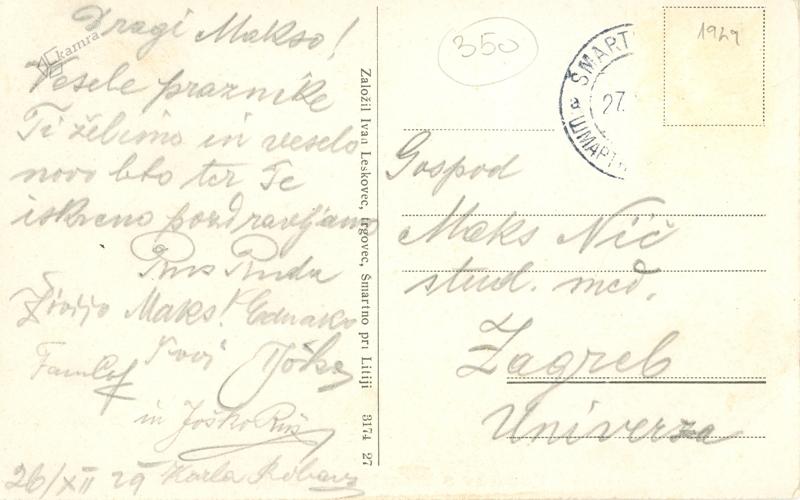 Dragi Makso!
kamra
Vesele praznike
Ti želimo in veselo
novo leto ter Te
iskreno pozdravljamo
Rus Ruda
Živijo Maks! Enako
Tvoj Joško
in Joško Rus
26/XII 29 Karla
Založil Ivan Leskovec, trgovec, Šmartno pri Litiji 3174 27
350
1929
ŠMART
27.
ШМАРТ
Gospod
Maks Nič
stud. med.
Zagreb
Univerza